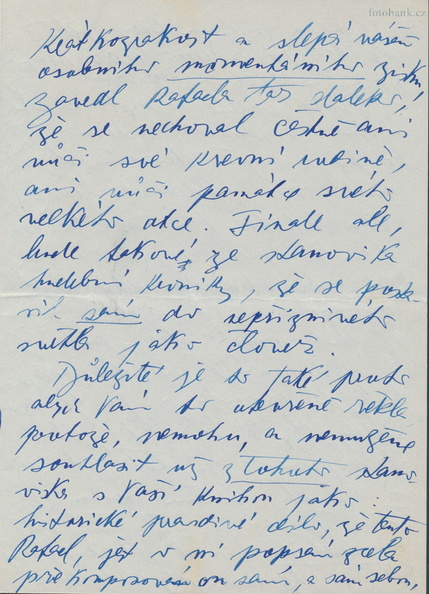 fotobank.cz
Krátkozrakost a slepá vášeň
osobního momentálního zisku
zavedl Rafaela tak daleko,
že se nechoval čestně ani
vůči své krevní rodině,
ani vůči památce svého
velkého otce. Finale all,
bude takové, že stanoviska
hudební kroniky, že se posta
vil sám do nepříznivého
světla jako člověk.
Důležité je to také proto
abych Vám to otevřeně řekla
protože, nemohu, a nemůžeme
souhlasit už z tohoto stano
viska s Vaší knihou jako
historické pravdivé dílo, že tento
Rafael, jest v ní popsán zcela
překomponován on sám, a sám sebou,